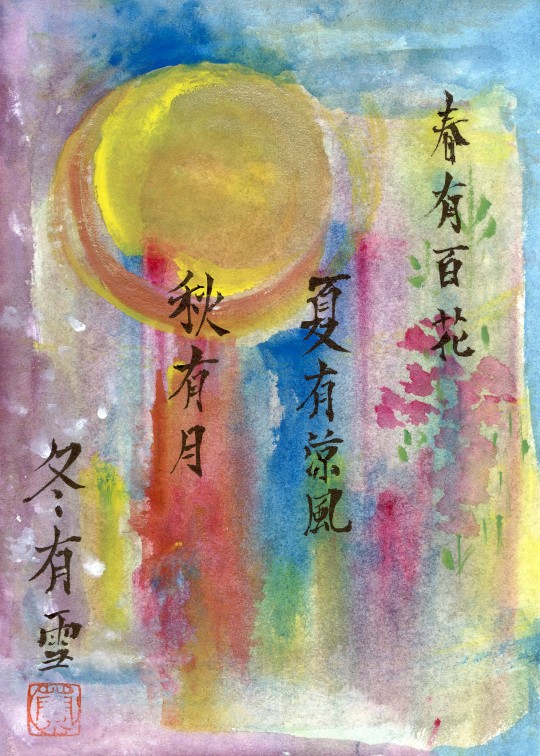 春有百花
夏有涼風
秋有月
冬有雪